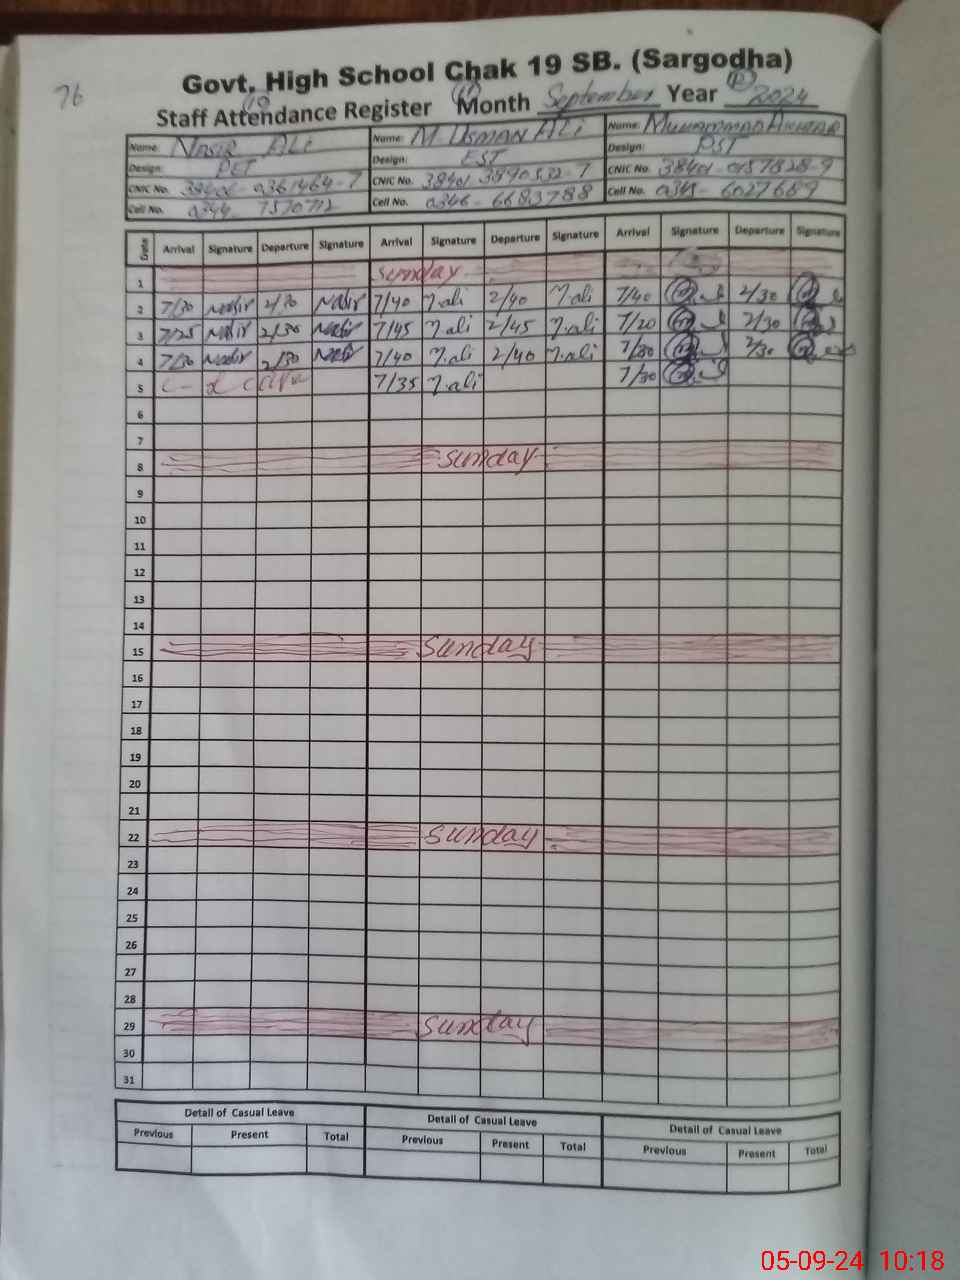 76
Govt. High School Chak 19 SB. (Sargodha)
Staff Attendance Register Month September Year 2024
Name: Nasir Ali Name: M. Usman Ali Name: Muhammad Akhtar
Design: PET Design: EST Design: PST
CNIC No. CNIC No. 38401 3890532-7 CNIC No.
Cell No. 0344 7570712 Cell No. 0346-6683788 Cell No. 0345-6027689
Date Arrival Signature Departure Signature Arrival Signature Departure Signature Arrival Signature Departure Signature
1 Sunday
2 7/30 Nasir 2/30 Nasir 7/40 M.ali 2/40 M.ali 7/40 2/30
3 7/25 Nasir 2/30 Nasir 7/45 M.ali 2/45 M.ali 7/20 2/30
4 7/30 Nasir 2/30 Nasir 7/40 M.ali 2/40 M.ali 7/30 2/30
5 7/35 M.ali 7/30
6
7
8 Sunday
9
10
11
12
13
14
15 Sunday
16
17
18
19
20
21
22 Sunday
23
24
25
26
27
28
29 Sunday
30
31
Detail of Casual Leave Detail of Casual Leave Detail of Casual Leave
Previous Present Total Previous Present Total Previous Present Total
05-09-24 10:18